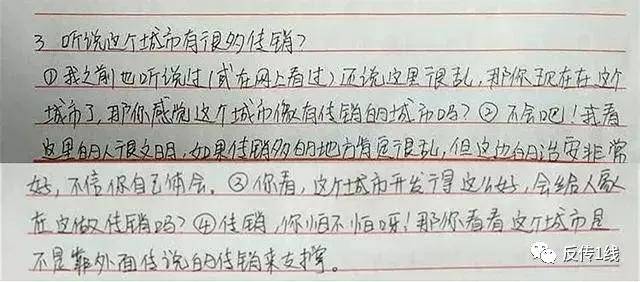 3. 听说这个城市有很多传销?
①我之前也听说过(或在网上看过)还说这里很乱,那你现在在这个
城市了,那你感觉这个城市像有传销的城市吗?②不会吧!我看
这里的人很文明,如果传销多的地方肯定很乱,但这边的治安非常
好,不信你自己体会。③你看,这个城市开发得这么好,会给人家
在这做传销吗?④传销,你怕不怕呀!那你看看这个城市是
不是靠外面传说的传销来支撑。
反传1线